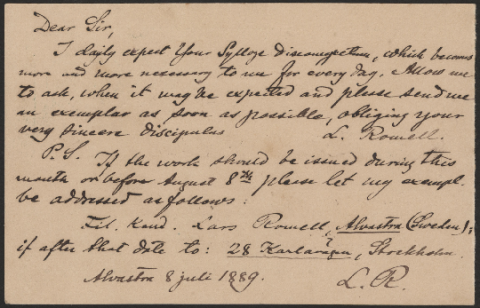 Dear Sir,
I daily expect Your Sylloge discomycetum, which becomes
more and more necessary to me for every day. Allow me
to ask, when it may be expected and please send me
an exemplar as soon as possible, obliging your
very sincere discipulus L. Romell.
P.S. If the work should be issued during this
month or before August 8th please let my exempl.
be addressed as follows:
Fil. Kand. Lars Romell, Alvastra (Sweden);
if after that date to: 28 Karlavägen, Stockholm.
Alvastra 8 juli 1889. L. R.